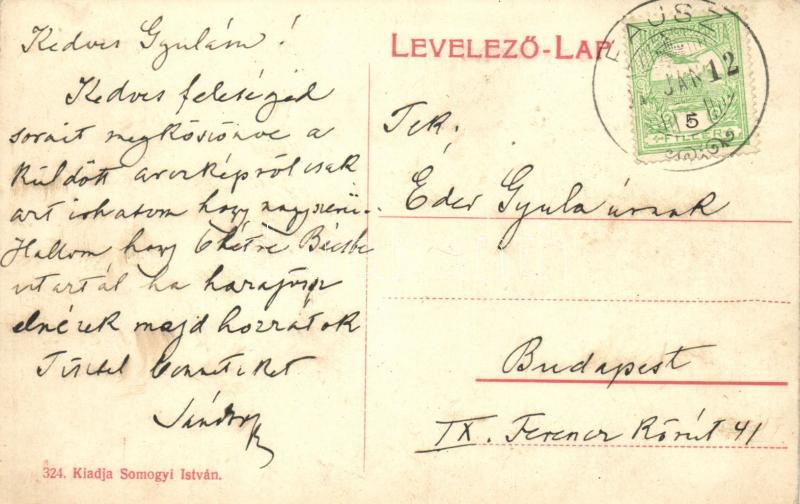 Kedves Gyulám!
Kedves feleséged
sorait megköszönve a
küldött arczképről csak
azt irhatom hogy nagyszerü.
Hallom hogy 6 hétre Bécsbe
utaztál ha hazajösz
elnézek majd hozzátok
Tisztel benneteket
Sándor
324. Kiadja Somogyi István.
LEVELEZŐ-LAP
JAN 12
5
FILLÉR
Tek.
Éder Gyula úrnak
Budapest
IX. Ferencz Körút 41